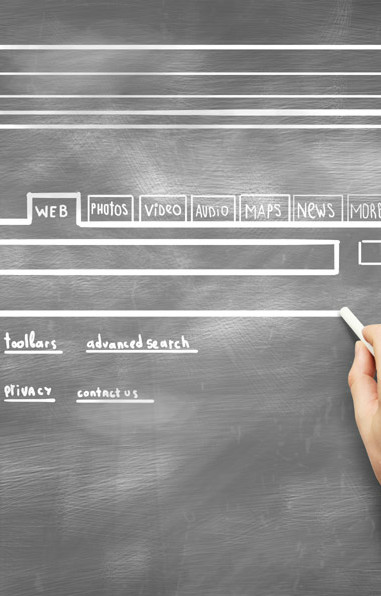 WEB PHOTOS VIDEO AUDIO MAPS NEWS MORE
toolbars advanced search
PRIVACY contact us